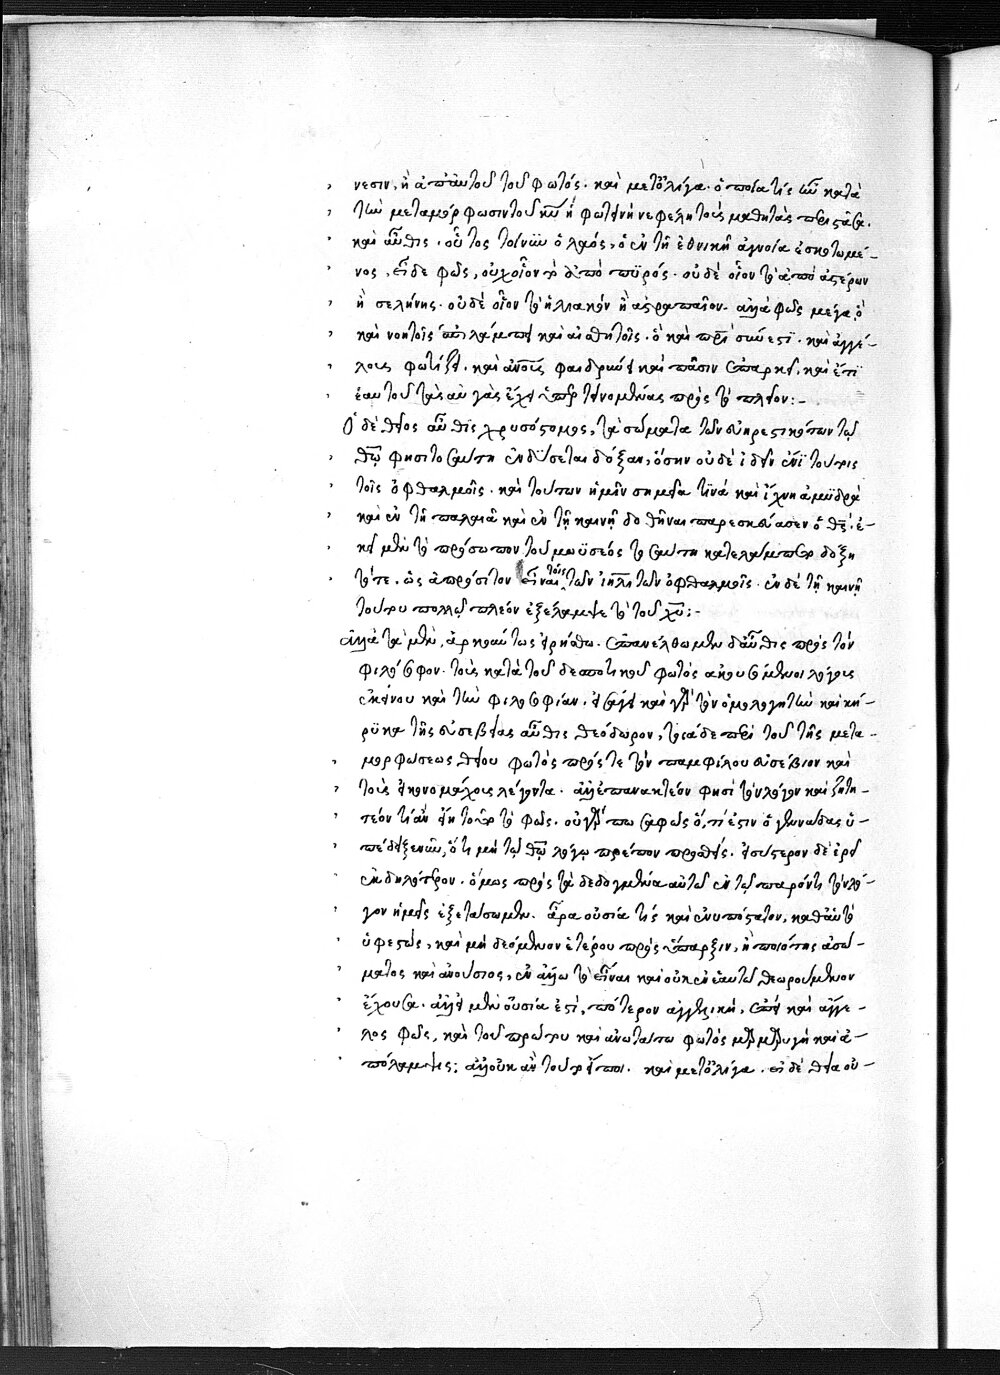 νεσιν, ἢ ἀπ' αὐτοῦ τοῦ φωτός. καὶ μετ' ὀλίγα. ὁποία τίς ὢν κατὰ
τὴν μεταμόρφωσιν τοῦ κυ ἡ φωτεινὴ νεφέλη τοὺς μαθητὰς
καὶ αὖθις. οὗτος τοίνυν ὁ λαός, ὁ ἐν τῇ ἐθνικῇ ἀγνοίᾳ ἐσκοτωμέ-
νος, εἶδε φῶς, οὐχ οἷον τὸ ἀπὸ πυρός. οὐδὲ οἷον τὸ ἀπὸ ἀστέρων
ἢ σελήνης. οὐδὲ οἷον τὸ ἡλιακὸν ἢ ἀστραπαῖον. ἀλλὰ φῶς μέγα, ὃ
καὶ νοητοῖς ἀπολάμπει καὶ αἰσθητοῖς. ὃ καὶ πρι σύνεστι. καὶ ἀγγέ-
λους φωτίζει. καὶ ανους φαιδρύνει καὶ πᾶσιν ἐπαρκεῖ. καὶ ἔτι
ἑαυτοῦ τὰς αὐγὰς ἔχει ὑπερτεινομένας πρὸς τὸ πλέον:-
Ὁ δὲ θεῖος αὖθις χρυσόστομος, τὰ σώματα τῶν εὐηρεστηκότων τῷ
θω φησὶ τοσαύτην ἐνδύσεται δόξαν, ὅσην οὐδὲ ἰδεῖν ἔνι τούτοις
τοῖς ὀφθαλμοῖς. καὶ τούτων ἡμῖν σημεῖα τινὰ καὶ ἴχνη ἀμυδρὰ
καὶ ἐν τῇ παλαιᾷ καὶ ἐν τῇ καινῇ δοθῆναι παρεσκεύασεν ὁ θς. ἐ-
κεῖ μὲν τὸ πρόσωπον τοῦ μωϋσέος τοσαύτη κατελάμπετο δόξῃ
τότε, ὡς ἀπρόσιτον εἶναι τοῖς τῶν ιηλιτῶν ὀφθαλμοῖς. ἐν δὲ τῇ καινῇ
τούτου πολλῷ πλέον ἐξέλαμψε τὸ τοῦ χυ:-
Ἀλλὰ ταῦτα μὲν, ἀρκούντως εἰρήσθω. ἐπανέλθωμεν δ' αὖθις πρὸς τὸν
φιλόσοφον. τοὺς κατὰ τοῦ δεσποτικοῦ φωτὸς ἀκουσόμενοι λόγους
ἐκείνου καὶ τὴν φιλοσοφίαν. εἰσάγει καὶ γὰρ τὸν ὁμολογητὴν καὶ κή-
ρυκα τῆς εὐσεβείας αὖθις θεόδωρον, τοιάδε περὶ τοῦ τῆς μετα-
μορφώσεως θείου φωτὸς πρός τε τὸν παμφίλου εὐσέβιον καὶ
τοὺς εἰκονομάχους λέγοντα. ἀλλ' ἐπανακτέον φησὶ τὸν λόγον καὶ ζητη-
τέον τί ἂν εἴη τοῦτο τὸ φῶς. οὐ γάρ πω σαφῶς ὅ, τι ἐστὶν ὁ γεννάδας ὑ-
πέδειξεν ἡμῖν, ὅτι μὴ τῷ θῶ λόγῳ πρέπον προσθείς. εἰσύστερον δὲ ἐρεῖ
ἐκδηλότερον. ὅμως πρὸς τὰ δεδογμένα αὐτῷ ἐν τῷ παρόντι τὸν λό-
γον ἡμεῖς ἐξετάσωμεν. ἆρα οὐσία τίς καὶ ἐνυπόστατον, καθ' αὑτὸ
ὑφεστώς, καὶ μὴ δεόμενον ἑτέρου πρὸς ὕπαρξιν, ἢ ποιότης ἀσώ-
ματος καὶ ἀνούσιος, ἐν ἄλλῳ τὸ εἶναι καὶ οὐκ ἐν ἑαυτῷ θεωρούμενον
ἔχουσα. ἀλλ' εἰ μὲν οὐσία ἐστί, πότερον ἀγγελική, ἐπεὶ καὶ ἄγγε-
λος φῶς, καὶ τοῦ πρώτου καὶ ἀνωτάτω φωτὸς καὶ ἀ-
πόλαμψις; ἀλλ' οὐκ ἂν τοῦτο εἴποι. καὶ μετ' ὀλίγα. εἰ δὲ θεία οὐ-